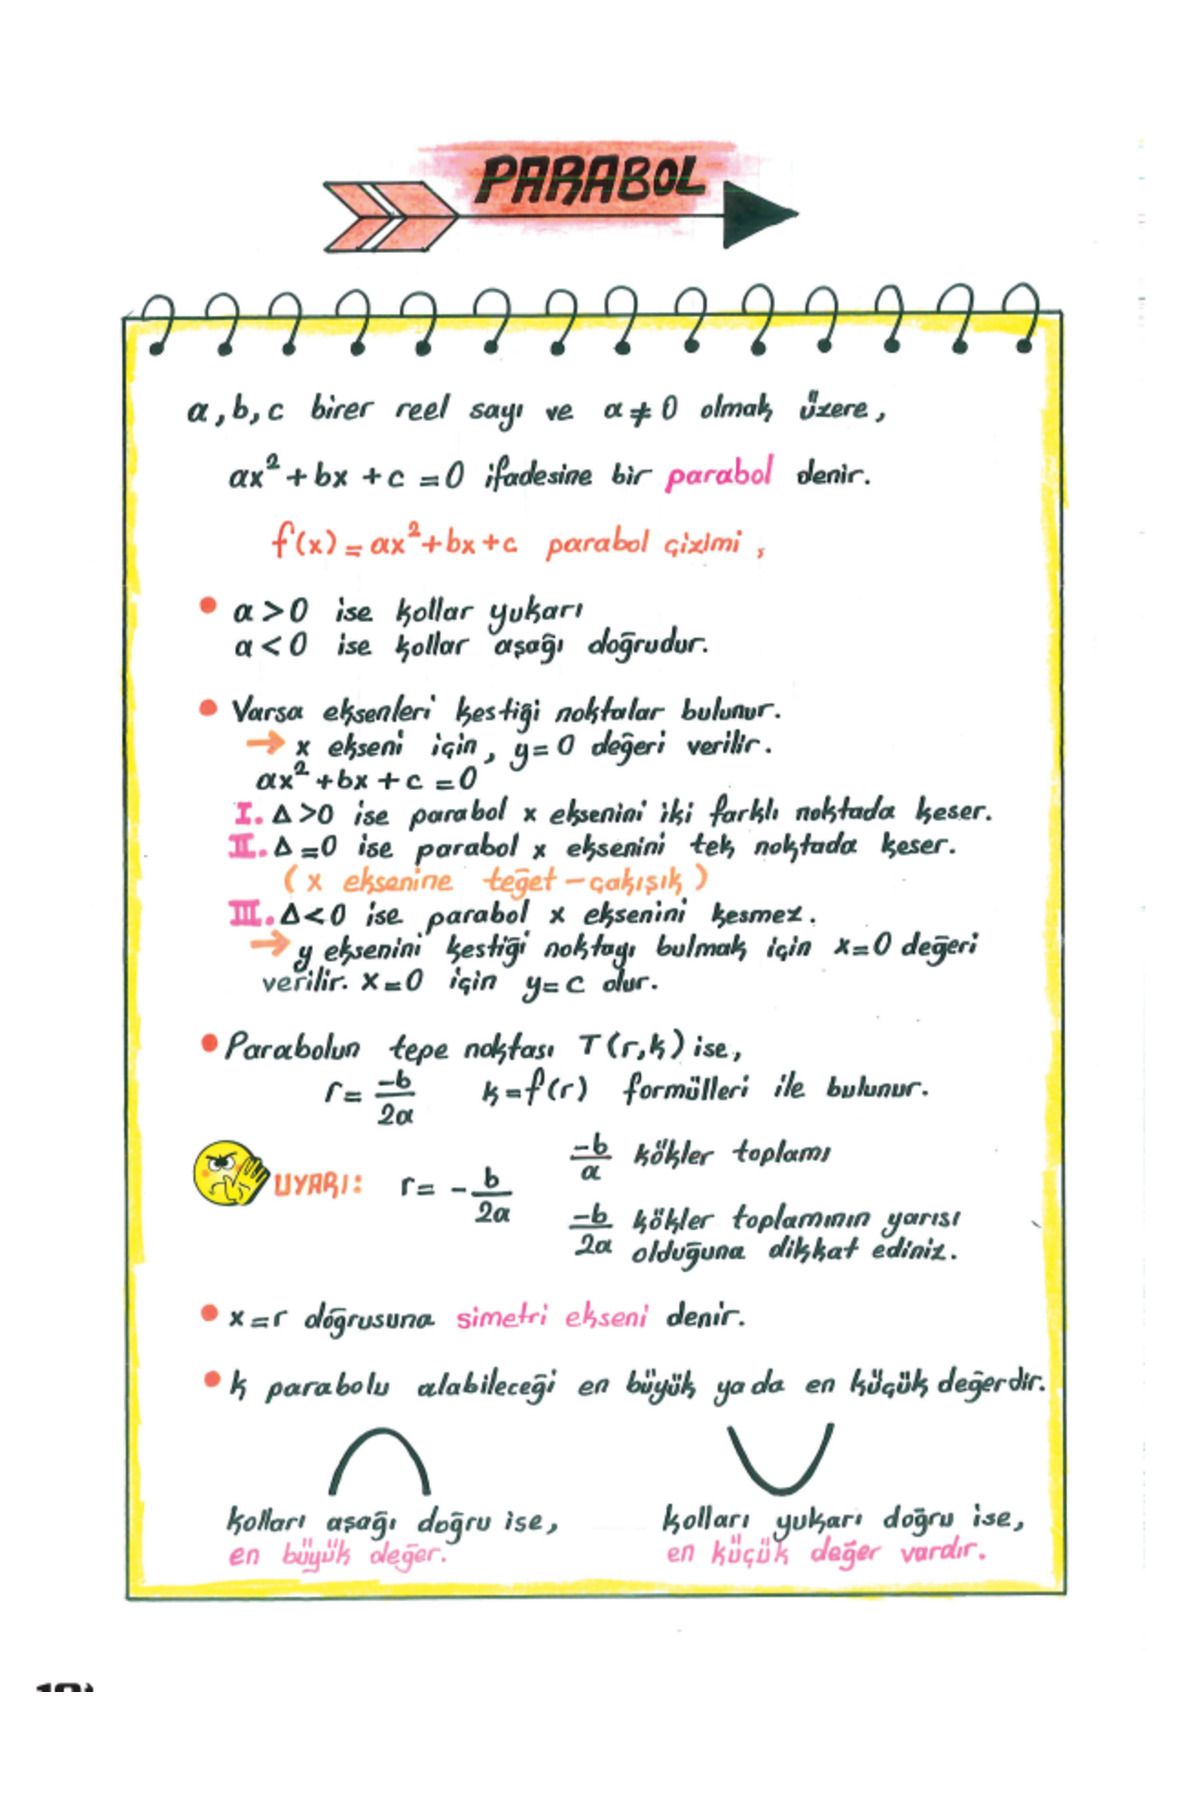 PARABOL
a, b, c birer reel sayı ve a ≠ 0 olmak üzere,
ax² + bx + c = 0 ifadesine bir parabol denir.
f(x) = ax² + bx + c parabol çizimi,
• a > 0 ise kollar yukarı
a < 0 ise kollar aşağı doğrudur.
• Varsa eksenleri kestiği noktalar bulunur.
→ x ekseni için, y = 0 değeri verilir.
ax² + bx + c = 0
I. Δ > 0 ise parabol x eksenini iki farklı noktada keser.
II. Δ = 0 ise parabol x eksenini tek noktada keser.
(x eksenine teğet - çakışık)
III. Δ < 0 ise parabol x eksenini kesmez.
→ y eksenini kestiği noktayı bulmak için x = 0 değeri
verilir. x = 0 için y = c olur.
• Parabolun tepe noktası T(r,k) ise,
r = -b/2a k = f(r) formülleri ile bulunur.
UYARI: r = - b/2a
-b/a kökler toplamı
-b/2a kökler toplamının yarısı
olduğuna dikkat ediniz.
• x = r doğrusuna simetri ekseni denir.
• k parabolu alabileceği en büyük ya da en küçük değerdir.
kolları aşağı doğru ise,
en büyük değer.
kolları yukarı doğru ise,
en küçük değer vardır.